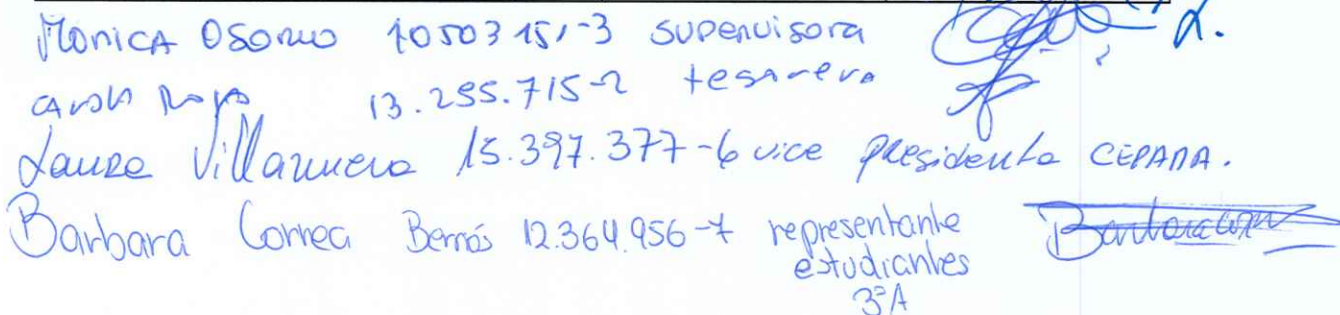 Monica Osorio 10503151-3 supervisora
Carola Rojo 13.255.715-2 tesorera
Laura Villanueva 15.397.377-6 vice presidenta CEPANA.
Barbara Correa Bernós 12.364.956-7 representante
estudiantes
3°A